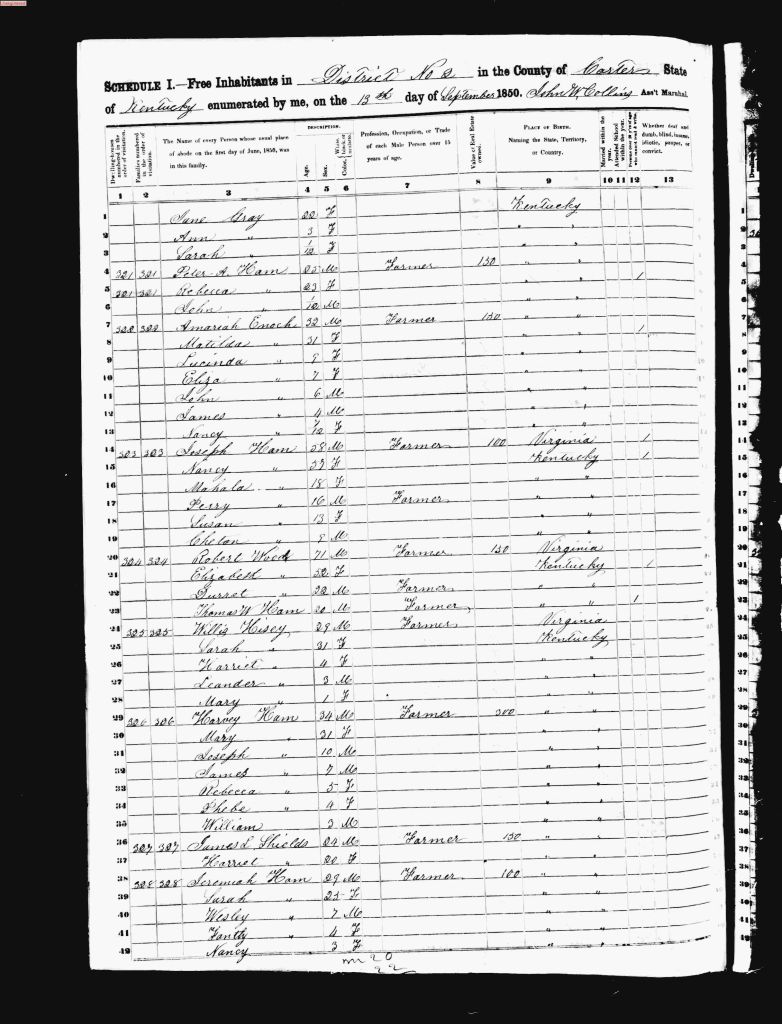 SCHEDULE I.—Free Inhabitants in District No 2 in the County of Carter State
of Kentucky enumerated by me, on the 13th day of September 1850. John W. Collins Ass't Marshal
Dwelling-houses numbered in the order of visitation.
Families numbered in the order of visitation.
The Name of every Person whose usual place of abode on the first day of June, 1850, was in this family.
DESCRIPTION.
Age.
Sex.
Color, White, black, or mulatto.
Profession, Occupation, or Trade of each Male Person over 15 years of age.
Value of Real Estate owned.
PLACE OF BIRTH. Naming the State, Territory, or Country.
Married within the year.
Attended School within the year.
Whether deaf and dumb, blind, insane, idiotic, pauper, or convict.
1 2 3 4 5 6 7 8 9 10 11 12 13
1 Jane Gray 22 F Kentucky
2 Ann " 3 F " "
3 Sarah " /12 F " "
4 321 321 Peter A. Ham 25 M Farmer 150 " "
5 321 321 Rebecca " 23 F " " 1
6 John " /12 M " "
7 322 322 Amariah Enoch 32 M Farmer 150 " "
8 Matilda " 31 F " " 1
9 Lucinda " 9 F " "
10 Eliza " 7 F " "
11 John " 6 M " "
12 James " 4 M " "
13 Nancy " /12 F " "
14 323 323 Joseph Ham 58 M Farmer 100 Virginia 1
15 Nancy " 57 F Kentucky 1
16 Mahala " 18 F " "
17 Perry " 16 M Farmer " "
18 Susan " 13 F " "
19 " 9 M " "
20 324 324 Robert Wood 71 M Farmer 150 Virginia
21 Elizabeth " 52 F Kentucky 1
22 " 22 M Farmer " "
23 Thomas W Ham 20 M Farmer " " 1
24 325 325 Willis Hisey 29 M Farmer Virginia
25 Sarah " 31 F Kentucky
26 Harriet " 4 F " "
27 Leander " 3 M " "
28 Mary " 1 F " "
29 326 326 Harvey Ham 34 M Farmer 300 " "
30 Mary " 31 F " "
31 Joseph " 10 M " "
32 James " 7 M " "
33 Rebecca " 5 F " "
34 Phebe " 4 F " "
35 William 3 M " "
36 327 327 James L Shields 24 M Farmer 150 " "
37 Harriet " 20 F " "
38 328 328 Jeremiah Ham 29 M Farmer 100 " "
39 Sarah " 25 F " "
40 Wesley " 7 M " "
41 " 4 F " "
42 Nancy 3 F " "
m 20
22